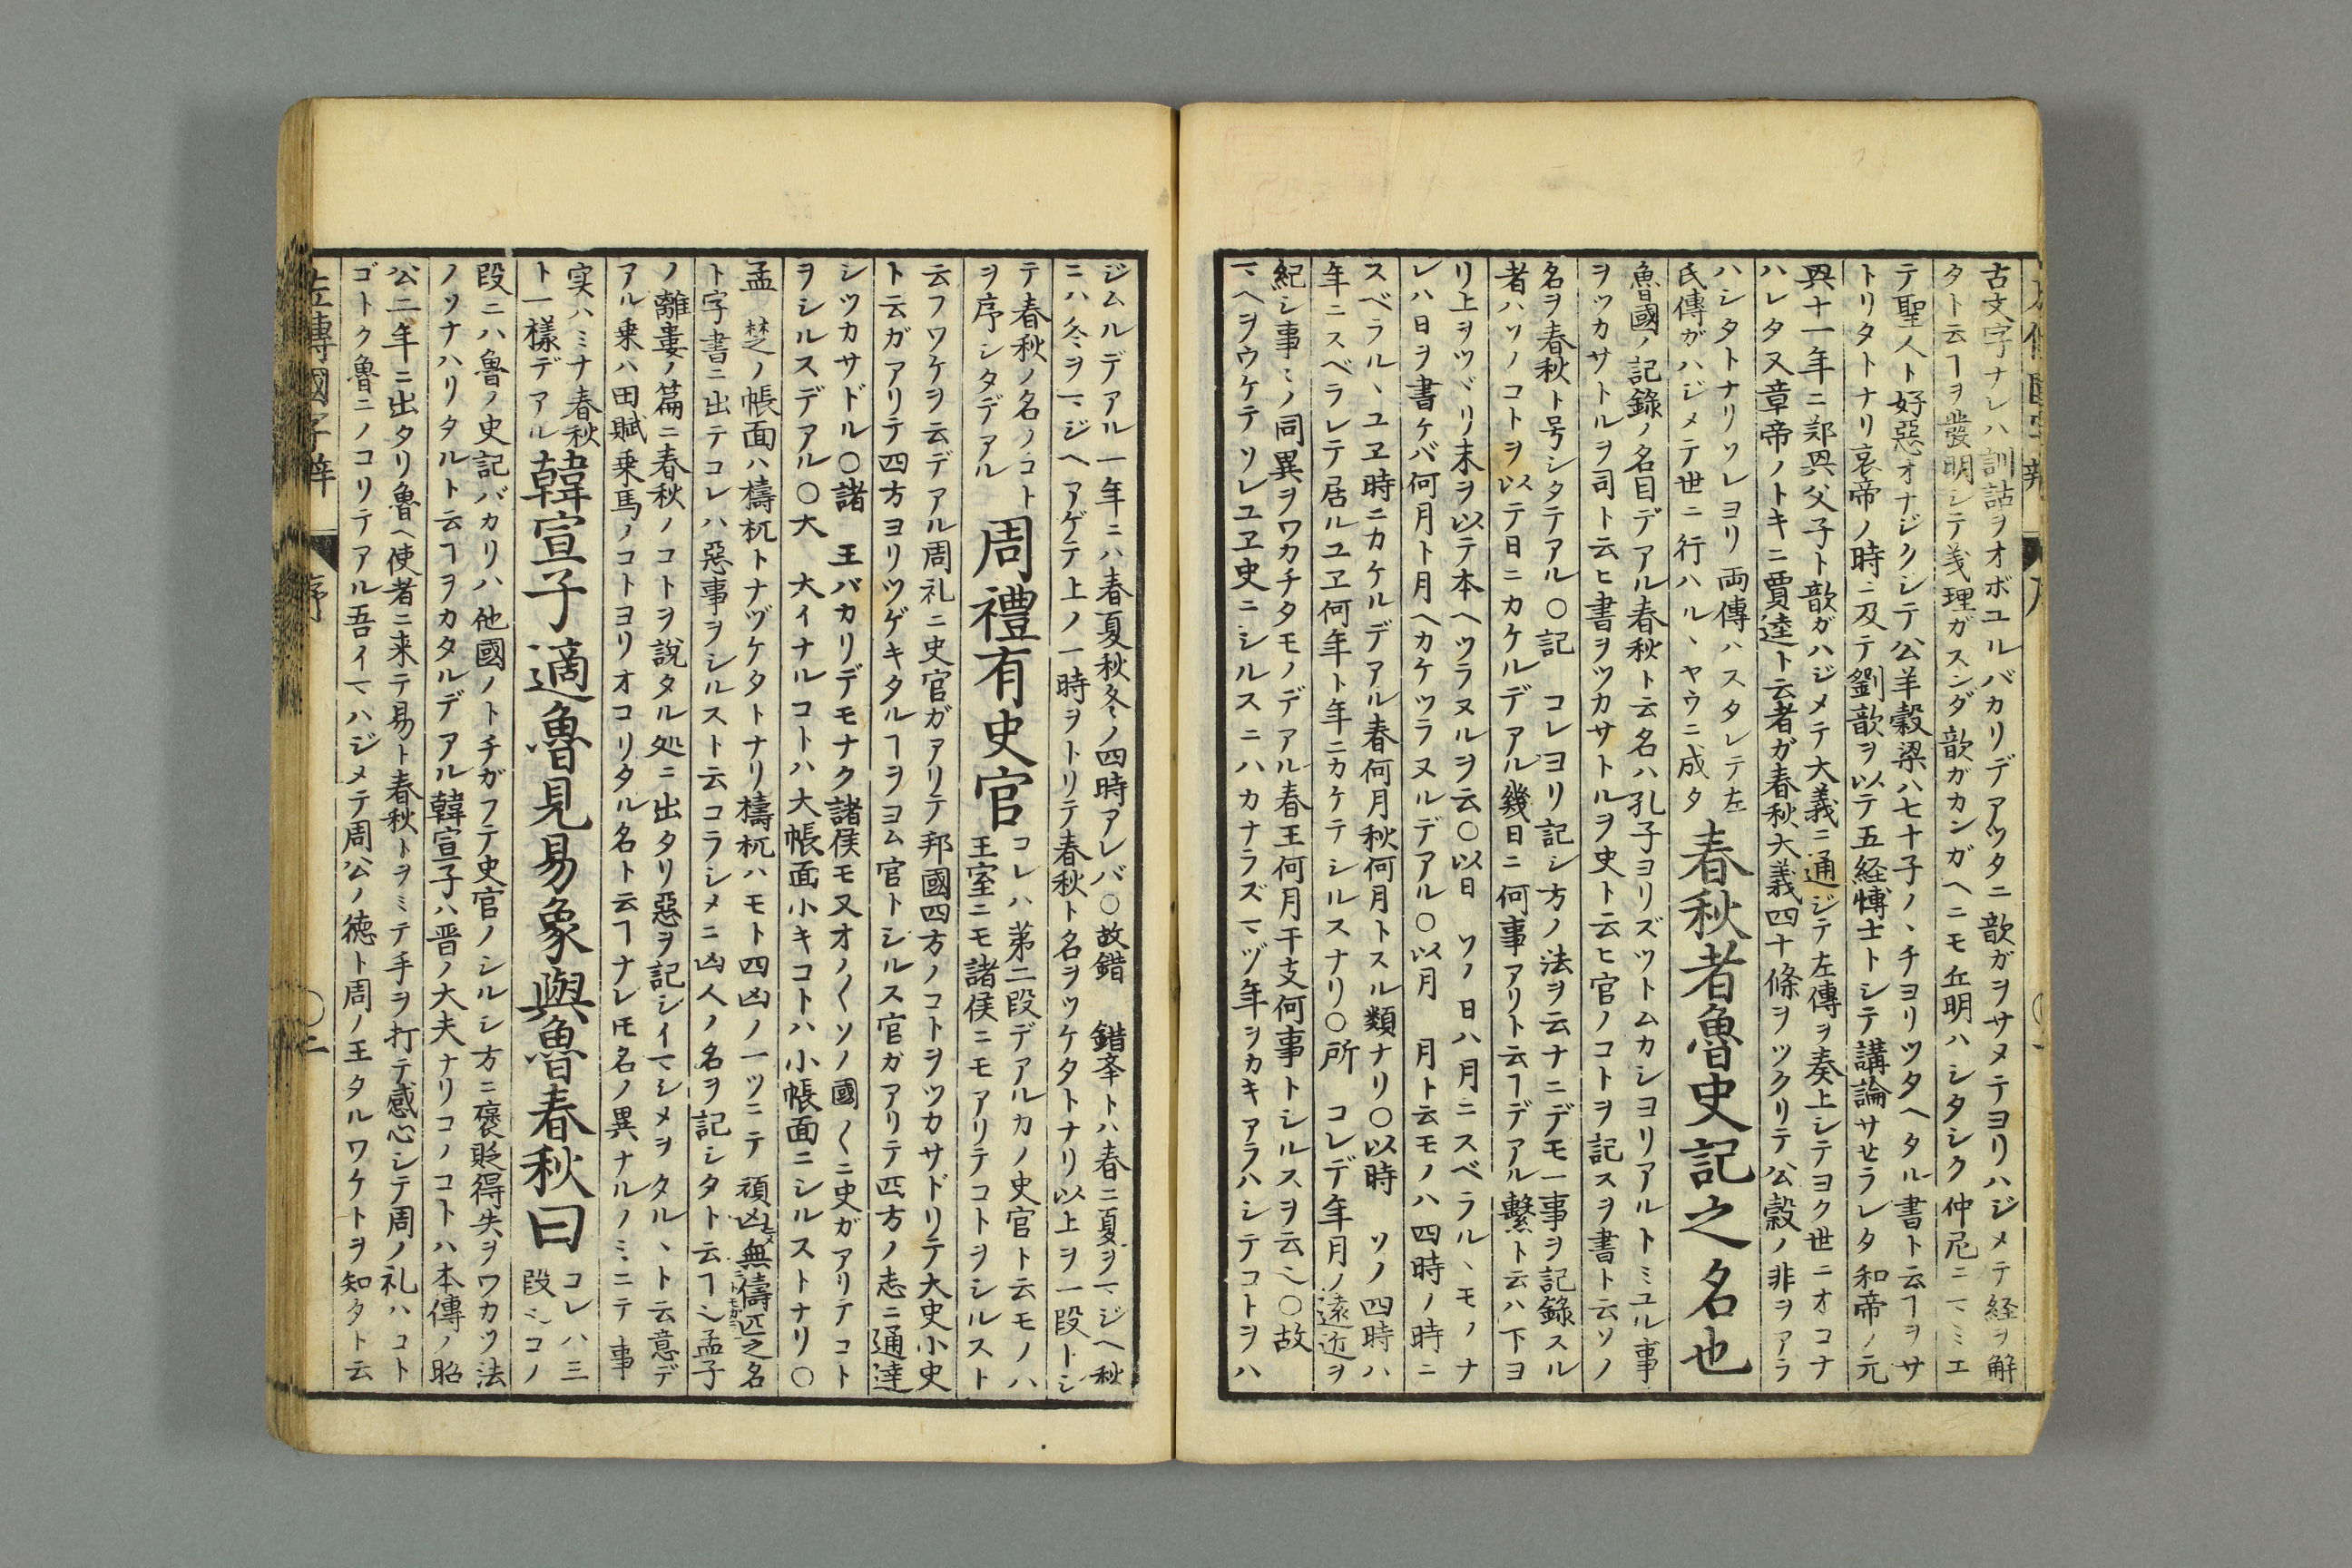 古文字ナレハ訓詁ヲオボユルバカリデアツタニ歆ガヲサメテヨリハジメテ経ヲ解
タト云ヿヲ發明シテ義理ガスンダ歆ガカンガヘニモ丘明ハシタシク仲尼ニマミエ
テ聖人ト好惡オナジクシテ公羊穀梁ハ七十子ノヽチヨリツタヘタル書ト云ヿヲサ
トリタトナリ哀帝ノ時ニ及テ劉歆ヲ以テ五経博士トシテ講論サセラレタ和帝ノ元
興十一年ニ郑興父子ト歆ガハジメテ大義ニ通ジテ左傳ヲ奏上シテヨク世ニオコナ
ハレタ又章帝ノトキニ賈逵ト云者ガ春秋大義四十條ヲツクリテ公穀ノ非ヲアラ
ハシタトナリソレヨリ両傳ハスタレテ左
氏傳ガハジメテ世ニ行ハルヽヤウニ成タ
春秋者魯史記之名也
魯國ノ記錄ノ名目デアル春秋ト云名ハ孔子ヨリズツトムカシヨリアルトミユル事
ヲツカサトルヲ司ト云ヒ書ヲツカサトルヲ史ト云ヒ官ノコトヲ記スヲ書ト云ソノ
名ヲ春秋ト号シタテアル〇記　コレヨリ記シ方ノ法ヲ云ナニデモ一事ヲ記錄スル
者ハソノコトヲ以テ日ニカケルデアル幾日ニ何事アリト云ヿデアル繫ト云ハ下ヨ
リ上ヲツヾリ末ヲ以テ本ヘツラヌルヲ云〇以日　ソノ日ハ月ニスベラルヽモノナ
レハ日ヲ書ケバ何月ト月ヘカケツラヌルデアル〇以月　月ト云モノハ四時ノ時ニ
スベラルヽユヱ時ニカケルデアル春何月秋何月トスル類ナリ〇以時　ソノ四時ハ
年ニスベラレテ居ルユヱ何年ト年ニカケテシルスナリ〇所　コレデ年月ノ遠近ヲ
紀シ事〻ノ同異ヲワカチタモノデアル春王何月干支何事トシルスヲ云〻〇故
マヘヲウケテソレユヱ史ニシルスニハカナラズマヅ年ヲカキアラハシテコトヲハ
ジムルデアル一年ニハ春夏秋冬ノ四時アレバ〇故錯　錯峯トハ春ニ夏ヲマジヘ秋
ニハ冬ヲマジヘアゲテ上ノ一時ヲトリテ春秋ト名ヲツケタトナリ以上ヲ一段トシ
テ春秋ノ名ノコト
ヲ序シタデアル
周禮有史官
コレハ苐二段デアルカノ史官ト云モノハ
王室ニモ諸侯ニモアリテコトヲシルスト
云フワケヲ云デアル周礼ニ史官ガアリテ邦國四方ノコトヲツカサドリテ大史小史
ト云ガアリテ四方ヨリツゲキタルヿヲヨム官トシルス官ガアリテ四方ノ志ニ通達
シツカサドル〇諸　王バカリデモナク諸侯モ又オノ〱ソノ國〱ニ史ガアリテコト
ヲシルスデアル〇大　大イナルコトハ大帳面小キコトハ小帳面ニシルストナリ〇
孟　楚ノ帳面ハ檮杌トナヅケタトナリ檮杌ハモト四凶ノ一ツニテ頑凶無儔匹之名
ト字書ニ出テコレハ惡事ヲシルスト云コラシメニ凶人ノ名ヲ記シタト云ヿ〻孟子
ノ離婁ノ篇ニ春秋ノコトヲ説タル処ニ出タリ惡ヲ記シイマシメヲタルヽト云意デ
アル乗ハ田賦乗馬ノコトヨリオコリタル名ト云ヿナレ𪜈名ノ異ナルノミニテ事
実ハミナ春秋
ト一樣デアル
韓宣子適魯見易象與魯春秋曰
コレハ三
段〻コノ
段ニハ魯ノ史記バカリハ他國ノトチガフテ史官ノシルシ方ニ褒貶得失ヲワカツ法
ノツナハリタルト云ヿヲカタルデアル韓宣子ハ晋ノ大夫ナリコノコトハ本傳ノ昭
公二年ニ出タリ魯ヘ使者ニ来テ易ト春秋トヲミテ手ヲ打テ感心シテ周ノ礼ハコト
ゴトク魯ニノコリテアル吾イマハジメテ周公ノ徳ト周ノ王タルワケトヲ知タト云
左傳國字辯　序　〇二